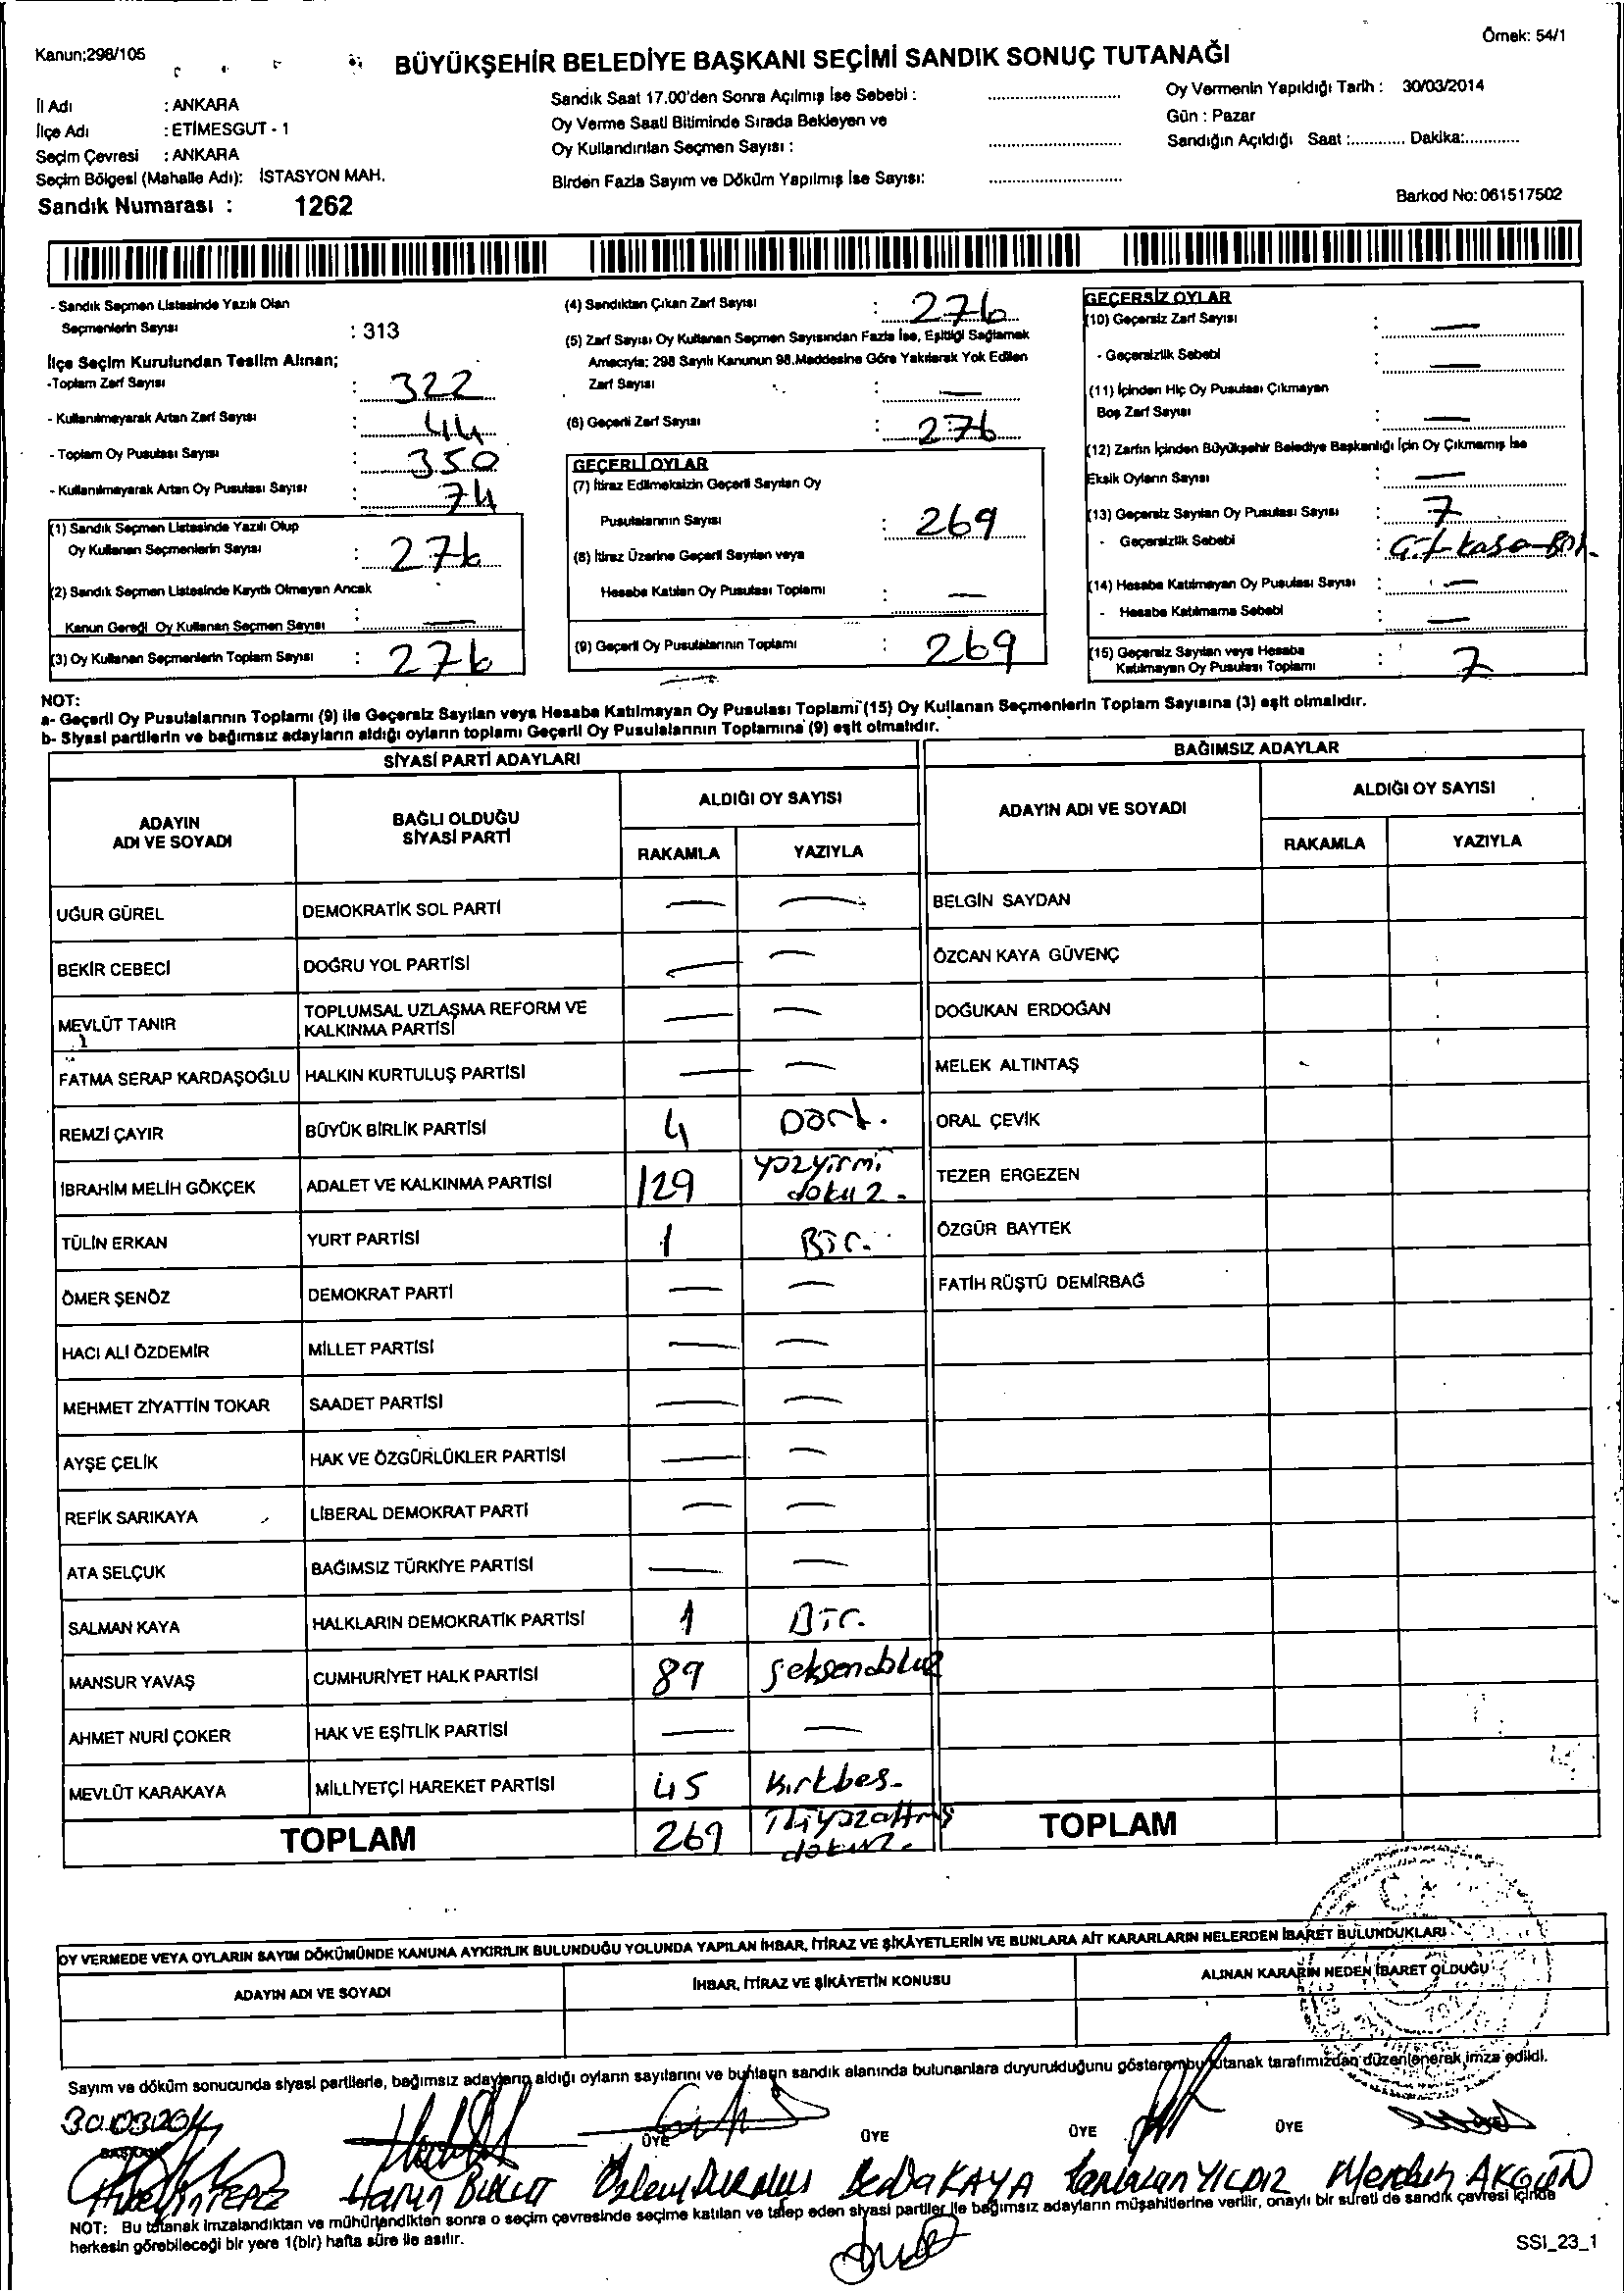 Kanun;298/105
Örnek: 54/1
BÜYÜKŞEHİR BELEDİYE BAŞKANI SEÇİMİ SANDIK SONUÇ TUTANAĞI
İl Adı : ANKARA
İlçe Adı : ETİMESGUT - 1
Seçim Çevresi : ANKARA
Seçim Bölgesi (Mahalle Adı): İSTASYON MAH.
Sandık Numarası : 1262
Sandık Saat 17.00'den Sonra Açılmış İse Sebebi :
Oy Verme Saati Bitiminde Sırada Bekleyen ve
Oy Kullandırılan Seçmen Sayısı :
Birden Fazla Sayım ve Döküm Yapılmış İse Sayısı:
Oy Vermenin Yapıldığı Tarih : 30/03/2014
Gün : Pazar
Sandığın Açıldığı Saat :............ Dakika:............
Barkod No: 061517502
- Sandık Seçmen Listesinde Yazılı Olan
Seçmenlerin Sayısı : 313
İlçe Seçim Kurulundan Teslim Alınan;
-Toplam Zarf Sayısı : 322
- Kullanılmayarak Artan Zarf Sayısı : 44
- Toplam Oy Pusulası Sayısı : 350
- Kullanılmayarak Artan Oy Pusulası Sayısı : 74
(1) Sandık Seçmen Listesinde Yazılı Olup
Oy Kullanan Seçmenlerin Sayısı : 276
(2) Sandık Seçmen Listesinde Kayıtlı Olmayan Ancak
Kanun Gereği Oy Kullanan Seçmen Sayısı : —
(3) Oy Kullanan Seçmenlerin Toplam Sayısı : 276
(4) Sandıktan Çıkan Zarf Sayısı : 276
(5) Zarf Sayısı Oy Kullanan Seçmen Sayısından Fazla İse, Eşitliği Sağlamak
Amacıyla; 298 Sayılı Kanunun 98.Maddesine Göre Yakılarak Yok Edilen
Zarf Sayısı : —
(6) Geçerli Zarf Sayısı : 276
GEÇERLİ OYLAR
(7) İtiraz Edilmeksizin Geçerli Sayılan Oy
Pusulalarının Sayısı : 269
(8) İtiraz Üzerine Geçerli Sayılan veya
Hesaba Katılan Oy Pusulası Toplamı : —
(9) Geçerli Oy Pusulalarının Toplamı : 269
GEÇERSİZ OYLAR
(10) Geçersiz Zarf Sayısı : —
- Geçersizlik Sebebi : —
(11) İçinden Hiç Oy Pusulası Çıkmayan
Boş Zarf Sayısı : —
(12) Zarfın İçinden Büyükşehir Belediye Başkanlığı İçin Oy Çıkmamış İse
Eksik Oyların Sayısı : —
(13) Geçersiz Sayılan Oy Pusulası Sayısı : 7
- Geçersizlik Sebebi :
(14) Hesaba Katılmayan Oy Pusulası Sayısı : —
- Hesaba Katılmama Sebebi : —
(15) Geçersiz Sayılan veya Hesaba
Katılmayan Oy Pusulası Toplamı : 7
NOT:
a- Geçerli Oy Pusulalarının Toplamı (9) ile Geçersiz Sayılan veya Hesaba Katılmayan Oy Pusulası Toplamı (15) Oy Kullanan Seçmenlerin Toplam Sayısına (3) eşit olmalıdır.
b- Siyasi partilerin ve bağımsız adayların aldığı oyların toplamı Geçerli Oy Pusulalarının Toplamına (9) eşit olmalıdır.
SİYASİ PARTİ ADAYLARI
ADAYIN ADI VE SOYADI
BAĞLI OLDUĞU SİYASİ PARTİ
ALDIĞI OY SAYISI
RAKAMLA YAZIYLA
UĞUR GÜREL DEMOKRATİK SOL PARTİ — —
BEKİR CEBECİ DOĞRU YOL PARTİSİ — —
MEVLÜT TANIR TOPLUMSAL UZLAŞMA REFORM VE KALKINMA PARTİSİ — —
FATMA SERAP KARDAŞOĞLU HALKIN KURTULUŞ PARTİSİ — —
REMZİ ÇAYIR BÜYÜK BİRLİK PARTİSİ 4 Dört.
İBRAHİM MELİH GÖKÇEK ADALET VE KALKINMA PARTİSİ 129 yüzyirmi dokuz.
TÜLİN ERKAN YURT PARTİSİ 1 Bir.
ÖMER ŞENÖZ DEMOKRAT PARTİ — —
HACI ALİ ÖZDEMİR MİLLET PARTİSİ — —
MEHMET ZİYATTİN TOKAR SAADET PARTİSİ — —
AYŞE ÇELİK HAK VE ÖZGÜRLÜKLER PARTİSİ — —
REFİK SARIKAYA LİBERAL DEMOKRAT PARTİ — —
ATA SELÇUK BAĞIMSIZ TÜRKİYE PARTİSİ — —
SALMAN KAYA HALKLARIN DEMOKRATİK PARTİSİ 1 Bir.
MANSUR YAVAŞ CUMHURİYET HALK PARTİSİ 89
AHMET NURİ ÇOKER HAK VE EŞİTLİK PARTİSİ — —
MEVLÜT KARAKAYA MİLLİYETÇİ HAREKET PARTİSİ 45 Kırkbeş
TOPLAM 269 İkiyüzaltmış dokuz.
BAĞIMSIZ ADAYLAR
ADAYIN ADI VE SOYADI
ALDIĞI OY SAYISI
RAKAMLA YAZIYLA
BELGİN SAYDAN
ÖZCAN KAYA GÜVENÇ
DOĞUKAN ERDOĞAN
MELEK ALTINTAŞ
ORAL ÇEVİK
TEZER ERGEZEN
ÖZGÜR BAYTEK
FATİH RÜŞTÜ DEMİRBAĞ
TOPLAM
OY VERMEDE VEYA OYLARIN SAYIM DÖKÜMÜNDE KANUNA AYKIRILIK BULUNDUĞU YOLUNDA YAPILAN İHBAR, İTİRAZ VE ŞİKÂYETLERİN VE BUNLARA AİT KARARLARIN NELERDEN İBARET BULUNDUKLARI
ADAYIN ADI VE SOYADI
İHBAR, İTİRAZ VE ŞİKÂYETİN KONUSU
ALINAN KARARIN NEDEN İBARET OLDUĞU
Sayım ve döküm sonucunda siyasi partilerle, bağımsız adayların aldığı oyların sayılarını ve bunların sandık alanında bulunanlara duyurulduğunu gösteren bu tutanak tarafımızdan düzenlenerek imza edildi.
30.03.2014
BAŞKAN ÜYE ÜYE ÜYE ÜYE
Harun Özlem Seda KAYA YILDIZ AKGÜN
NOT: Bu tutanak imzalandıktan ve mühürlendikten sonra o seçim çevresinde seçime katılan ve talep eden siyasi partiler ile bağımsız adayların müşahitlerine verilir, onaylı bir sureti de sandık çevresi içinde
herkesin görebileceği bir yere 1(bir) hafta süre ile asılır.
SSI_23_1